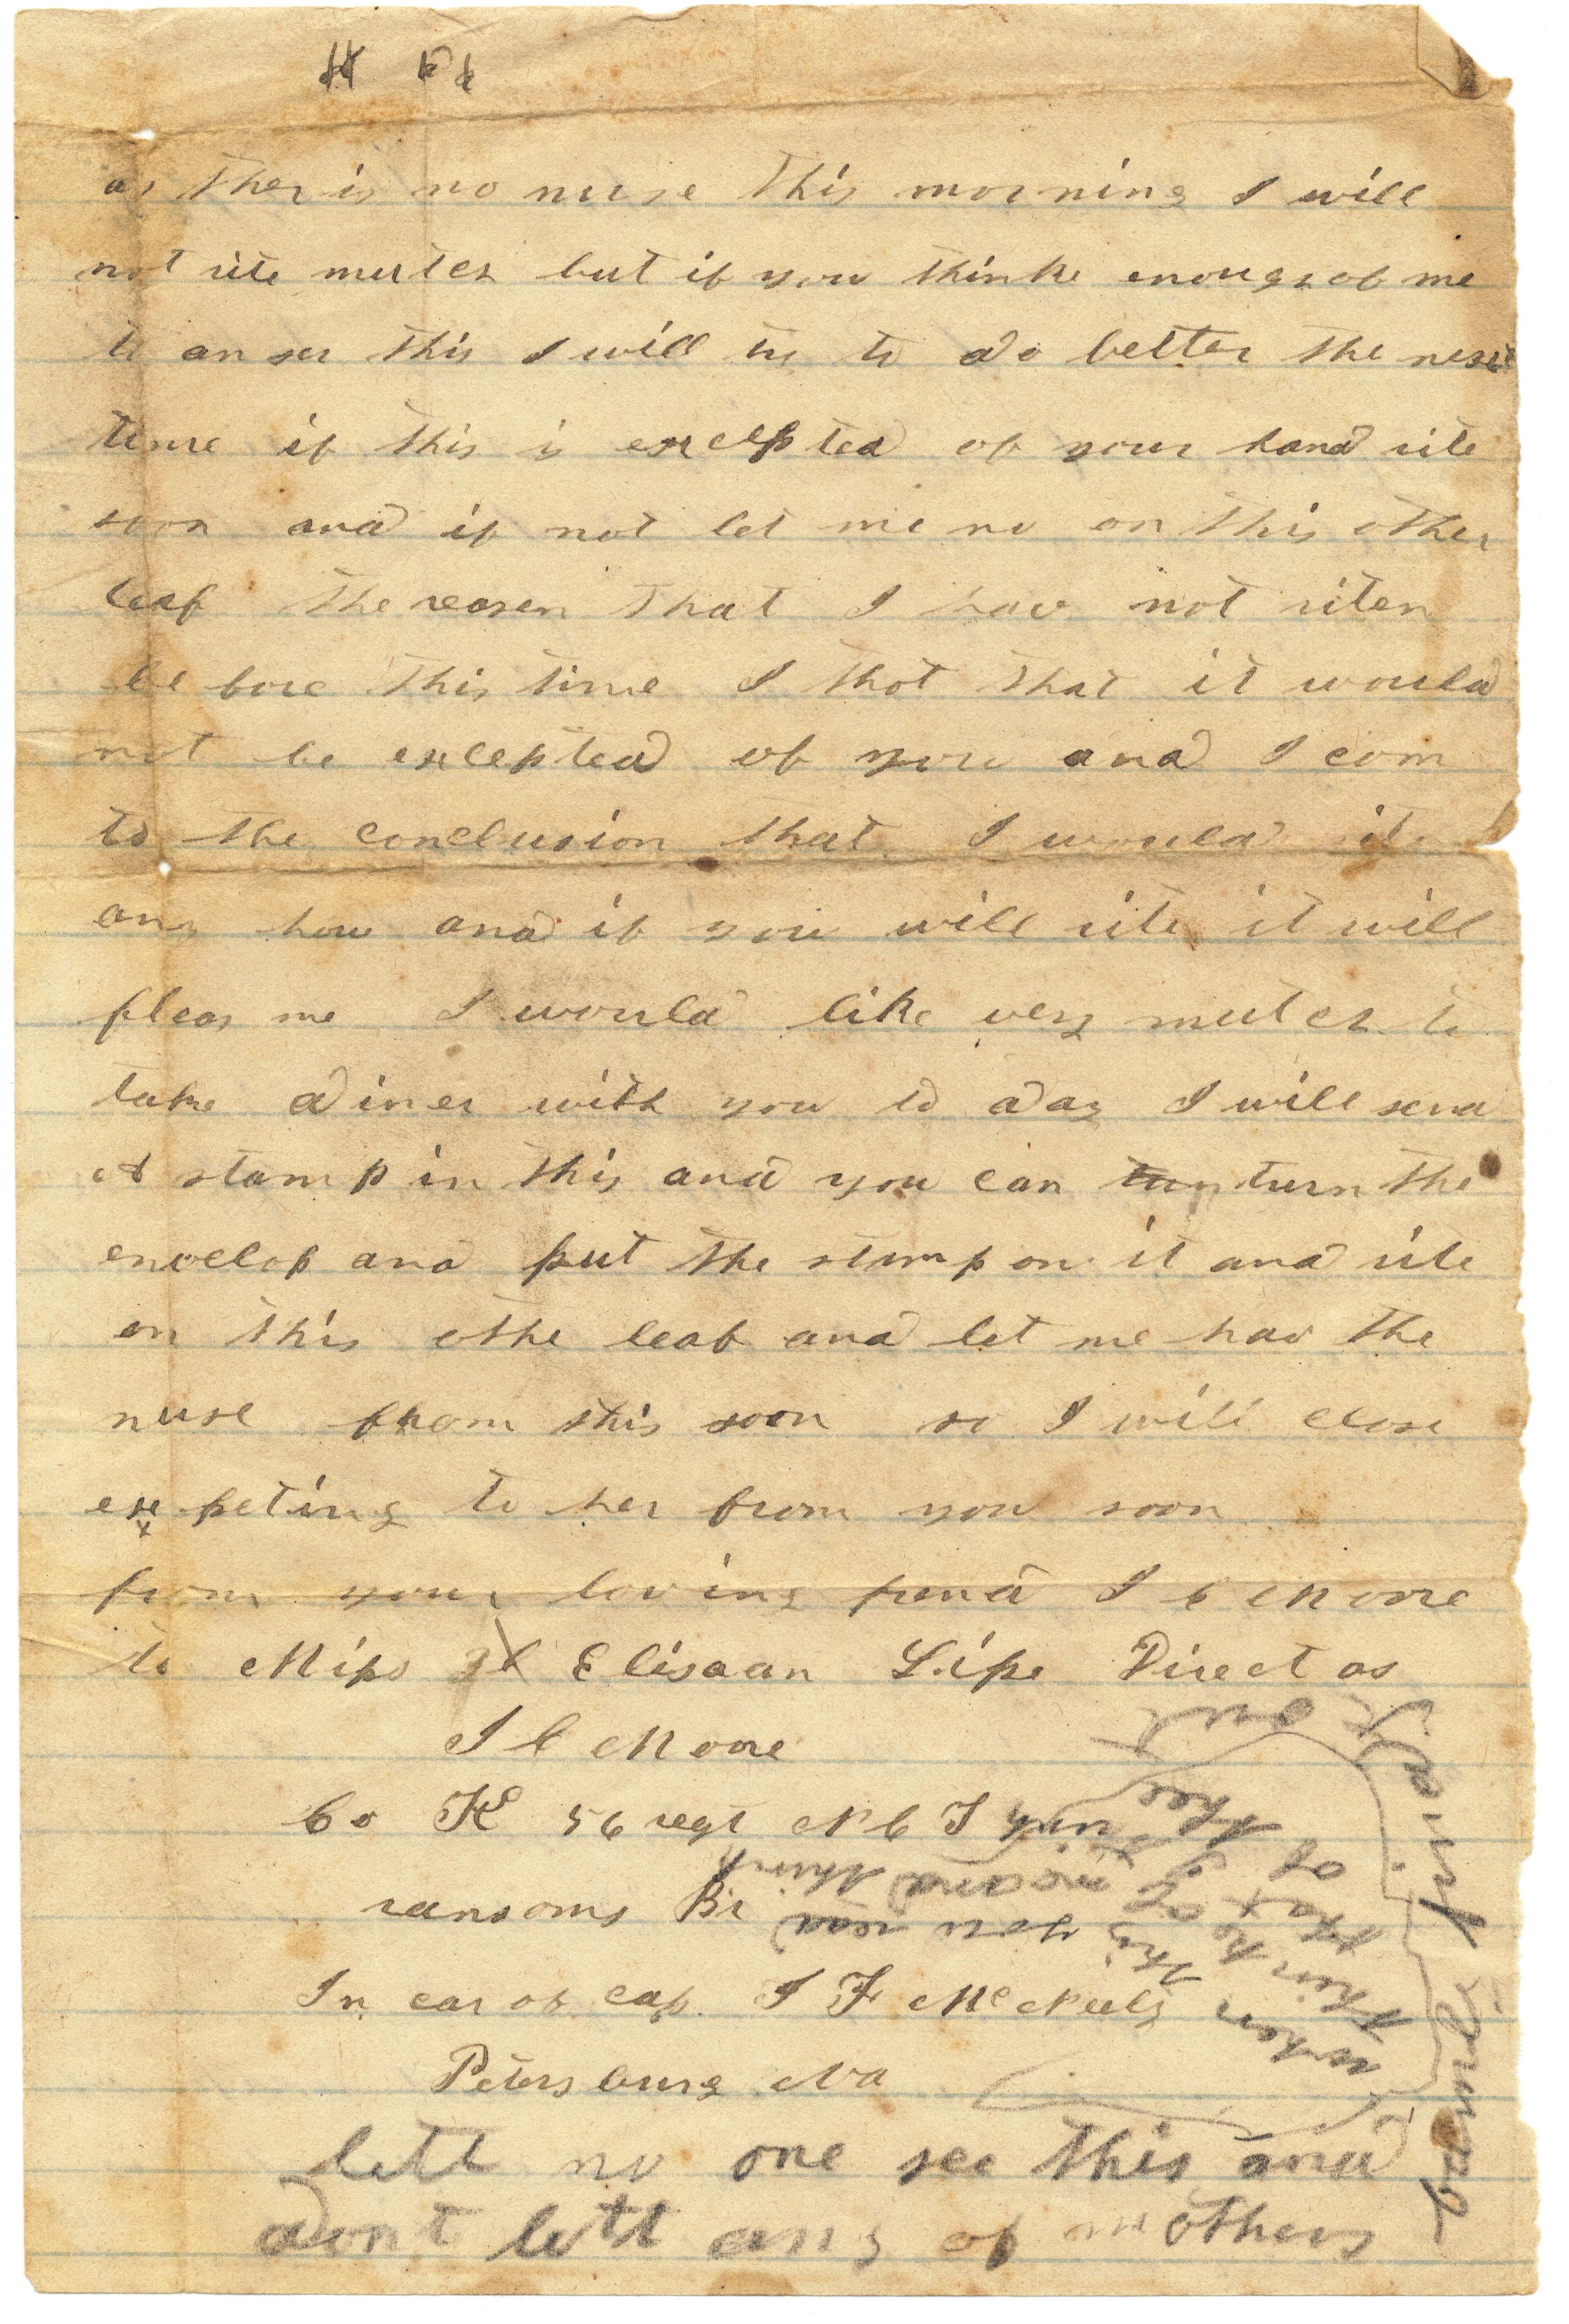 as ther is no nuse this morning I will
not rite mutch but if you thinke enough of me
to anser this I will try to do better the next
time if this is excepted of your hand rite
soon and if not let me no on this other
leaf the reasen that I hav not riten
be fore this time I thot that it would
not be excepted of you and I com
to the conclusion that I would rite
any how and if you will rite it will
pleas me I would like very mutch to
take diner with you to day I will send
A stamp in this and you can turn the
envelop and put the stamp on it and rite
on this othe leaf and let me hav the
nuse from this soon so I will close
expeting to her from you soon
from your loving frend J C Moore
to Miss Elisaan Lipe Direct as
J C Moore
Co K 56 regt N C T
ransoms Br
In car of cap J F McNeely
Petersburg Va
lett no one see this and
dont lett any of mothers
family
when you read this
think of me and think
that